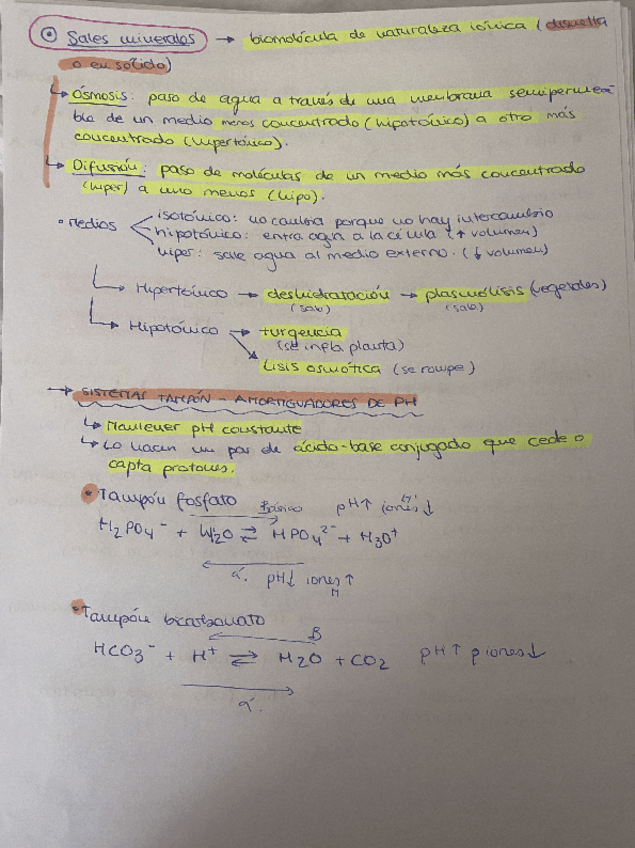 Sales minerales → biomolécula de naturaleza iónica (disuelta
o en sólido)
↳ Ósmosis: paso de agua a través de una membrana semipermea-
ble de un medio menos concentrado (hipotónico) a otro más
concentrado (hipertónico).
↳ Difusión: paso de moléculas de un medio más concentrado
(hiper) a uno menos (hipo).
• Medios
isotónico: no cambia porque no hay intercambio
hipotónico: entra agua a la célula (↑ volumen)
hiper: sale agua al medio externo. (↓ volumen)
↳ Hipertónico → deshidratación → plasmólisis (vegetales)
(sale) (sale)
↳ Hipotónico → turgencia
(se infla planta)
lisis osmótica (se rompe)
→ SISTEMAS TAMPÓN - AMORTIGUADORES DE PH
↳ Mantener pH constante
↳ Lo hacen un par de ácido-base conjugado que cede o
capta protones.
• Tampón fosfato Básico pH↑ iones ↓
H₂PO₄⁻ + H₂O ⇌ HPO₄²⁻ + H₃O⁺
á. pH↓ iones ↑
H
• Tampón bicarbonato
B
HCO₃⁻ + H⁺ ⇌ H₂O + CO₂ pH↑ piones↓
á.